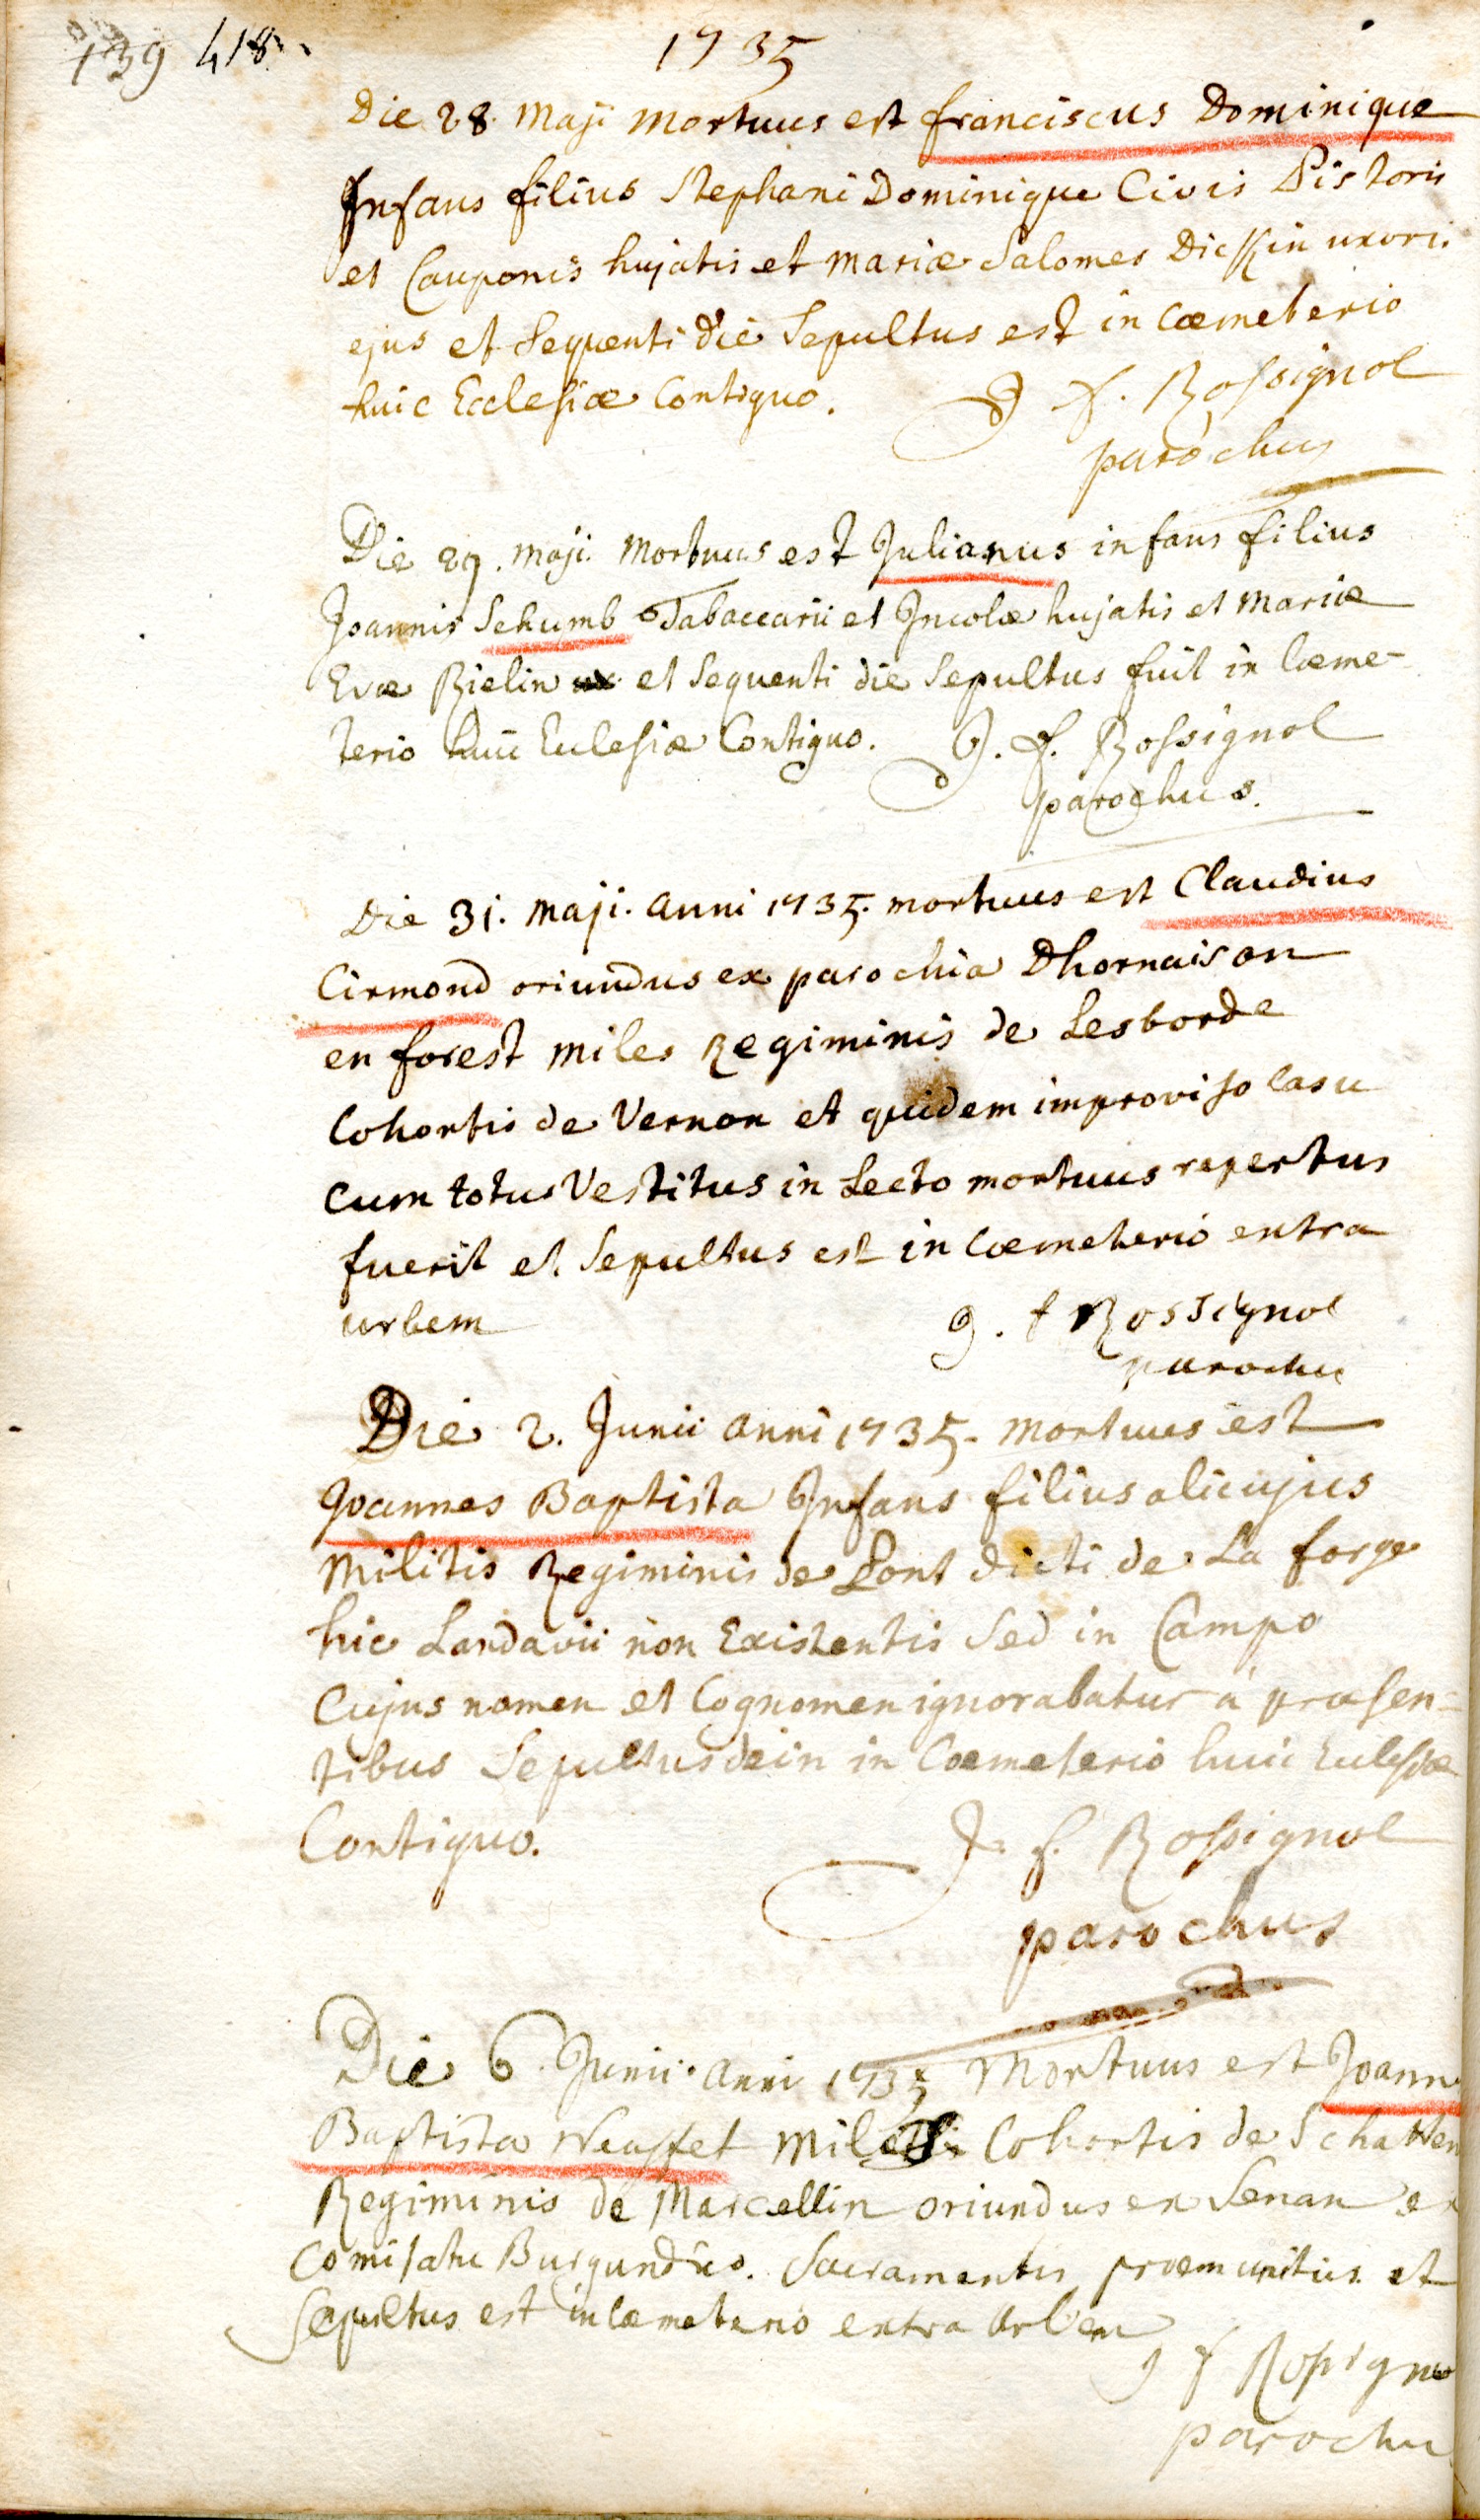 139 418
1735
Die 28. Maji Mortuus est franciscus Dominique
Infans filius Stephani Dominique Civis Pistoris
et Cauponis hujatis et Mariæ Salomes Dickin uxoris
ejus et Sequenti die Sepultus est in Cœmeterio
huic Ecclesiæ Contiguo. J f. Rossignol
parochus
Die 29. Maji. Mortuus est Julianus infans filius
Joannis Schumb Tabaccarii et Incolæ hujatis et Mariæ
Evæ Rielin et Sequenti die Sepultus fuit in Cœme-
terio huic Ecclesiæ Contiguo. J. f. Rossignol
parochus.
Die 31. Maji. anni 1735. mortuus est Claudius
Cirmond oriundus ex parochia Dhornaison
en forest miles Regiminis de Lesborde
Cohortis de Vernon et quidem improviso Casu
Cum totus Vestitus in Lecto mortuus repertus
fuerit et Sepultus est in Cœmeterio extra
urbem J. f Rossignol
parochus
Die 2. Junii anni 1735. mortuus est
Joannes Baptista Infans filius alicujus
Militis Regiminis de Pont dicti de La forge
hic Landavii non Existentis Sed in Campo
Cujus nomen et Cognomen ignorabatur à præsen=
tibus Sepultus dein in Cœmeterio huic Ecclesiæ
Contiguo. J. f. Rossignol
parochus
Die 6 Junii. anni 1735 Mortuus est Joann
Baptista Cohortis de
Regiminis de Marcellin oriundus ex Senan ex
Comitatu Burgundiæ. Sacramentis præmunitus et
Sepultus est in Cœmeterio extra Urbem
J f Rossigno
parochu